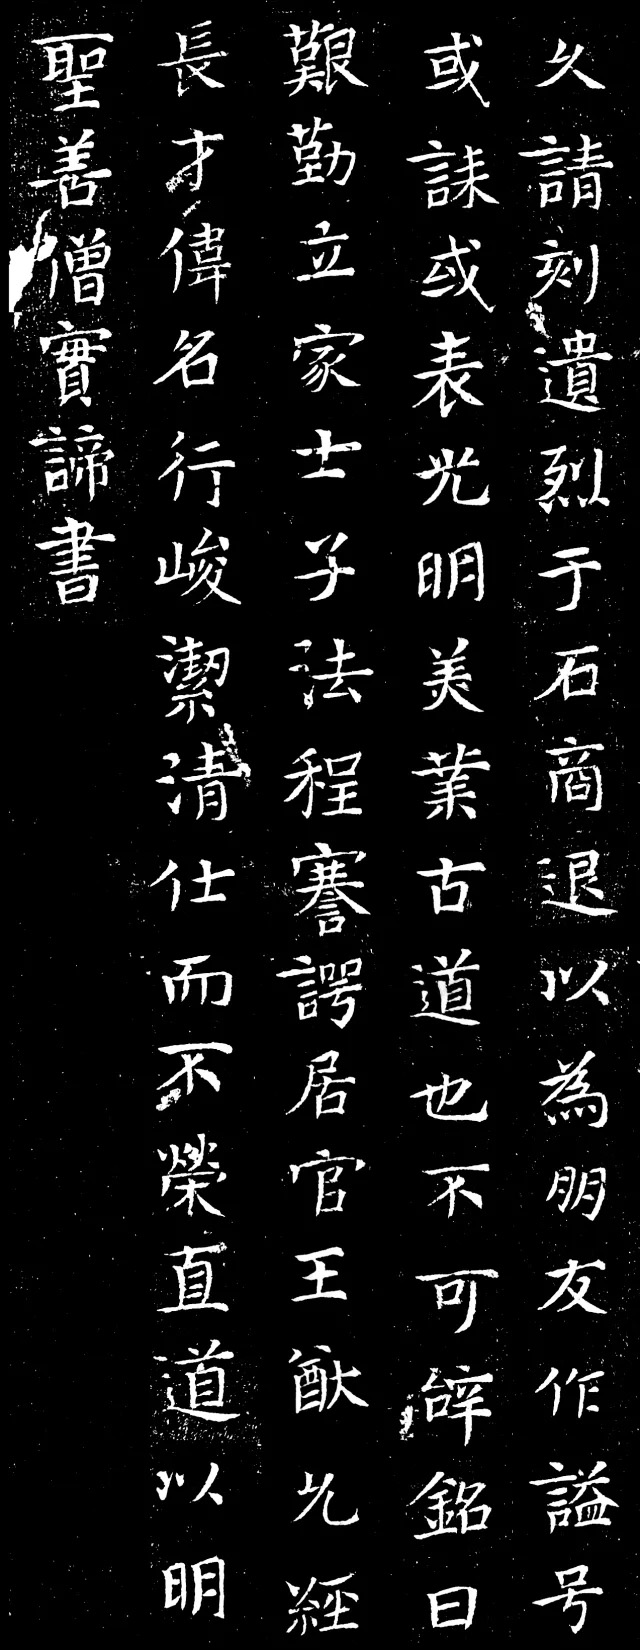 久請刻遺烈于石商退以為朋友作謚号
或誄或表光明美業古道也不可辞銘曰
艱勤立家士子法程謇諤居官王猷允經
長才偉名行峻潔清仕而不榮直道以明
聖善僧實諦書